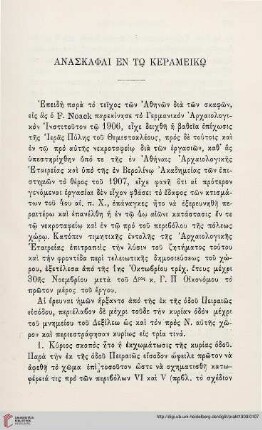 ΑΝΑΣΚΑΦΑΙ ΕΝ ΤΩ ΚΕΡΑΜΕΙΚΩ
Ἐπειδὴ παρὰ τὸ τεῖχος τῶν Ἀθηνῶν διὰ τῶν σκαφῶν,
εἰς ἃς ὁ F. Noack παρεκίνησε τὸ Γερμανικὸν Ἀρχαιολογι-
κὸν Ἰνστιτοῦτον τῷ 1906, εἶχε δειχθῆ ἡ βαθεῖα ἐπίχωσις
τῆς Ἱερᾶς Πύλης τοῦ Θεμιστοκλέους, πρὸς δὲ τούτοις καὶ
ἐν τῷ πρὸ αὐτῆς νεκροταφείῳ διὰ τῶν ἐργασιῶν, καθ' ἃς
ὑπεστηρίχθην ὑπό τε τῆς ἐν Ἀθήναις Ἀρχαιολογικῆς
Ἑταιρείας καὶ ὑπὸ τῆς ἐν Βερολίνῳ Ἀκαδημείας τῶν ἐπι-
στημῶν τὸ θέρος τοῦ 1907, εἶχε φανῆ ὅτι αἱ πρότερον
γενόμεναι ἐργασίαι δὲν εἶχον φθάσει τὸ ἔδαφος τῶν κτισμά-
των τοῦ 4ου αἰ. π. Χ., ἐπάναγκες ἦτο νὰ ἐξερευνηθῇ πε-
ραιτέρω καὶ ἐπανέλθῃ ἡ ἐν τῷ ἄνω αἰῶνι κατάστασις ἔν τε
τῷ νεκροταφείῳ καὶ ἐν τῷ πρὸ τοῦ περιβόλου τῆς πόλεως
χώρῳ. Κατόπιν τιμητικῆς ἐντολῆς τῆς Ἀρχαιολογικῆς
Ἑταιρείας ἐπιτραπεὶς τὴν λύσιν τοῦ ζητήματος τούτου
καὶ τὴν φροντίδα περὶ τελειωτικῆς δημοσιεύσεως τοῦ χώ-
ρου, ἐξετέλεσα ἀπὸ τῆς 1ης Ὀκτωβρίου τρέχ. ἔτους μέχρι
30ῆς Νοεμβρίου μετὰ τοῦ Δρος κ. Γ. Π Οἰκονόμου τὸ
πρῶτον μέρος τοῦ ἔργου.
Αἱ ἔρευναι ἡμῶν ἤρξαντο ἀπὸ τῆς ἐκ τῆς ὁδοῦ Πειραιῶς
εἰσόδου, περιέλαβον δὲ μέχρι τοῦδε τὴν κυρίαν ὁδὸν μέχρι
τοῦ μνημείου τοῦ Δεξίλεω ὡς καὶ τὸν πρὸς Ν. αὐτῆς χῶ-
ρον καὶ περιεστράφησαν κυρίως εἰς τρία τινά.
1. Κύριος σκοπὸς ἦτο ἡ ἐκχωμάτωσις τῆς κυρίας ὁδοῦ.
Παρὰ τὴν ἐκ τῆς ὁδοῦ Πειραιῶς εἴσοδον ὤφειλε πρῶτον νὰ
ἀρεθῇ τὸ χῶμα ἐπὶ τοσοῦτον ὥστε νὰ σχηματισθῇ κατω-
φέρειά τις πρὸ τῶν περιβόλων VI καὶ V (πρβλ. τὸ σχέδιον